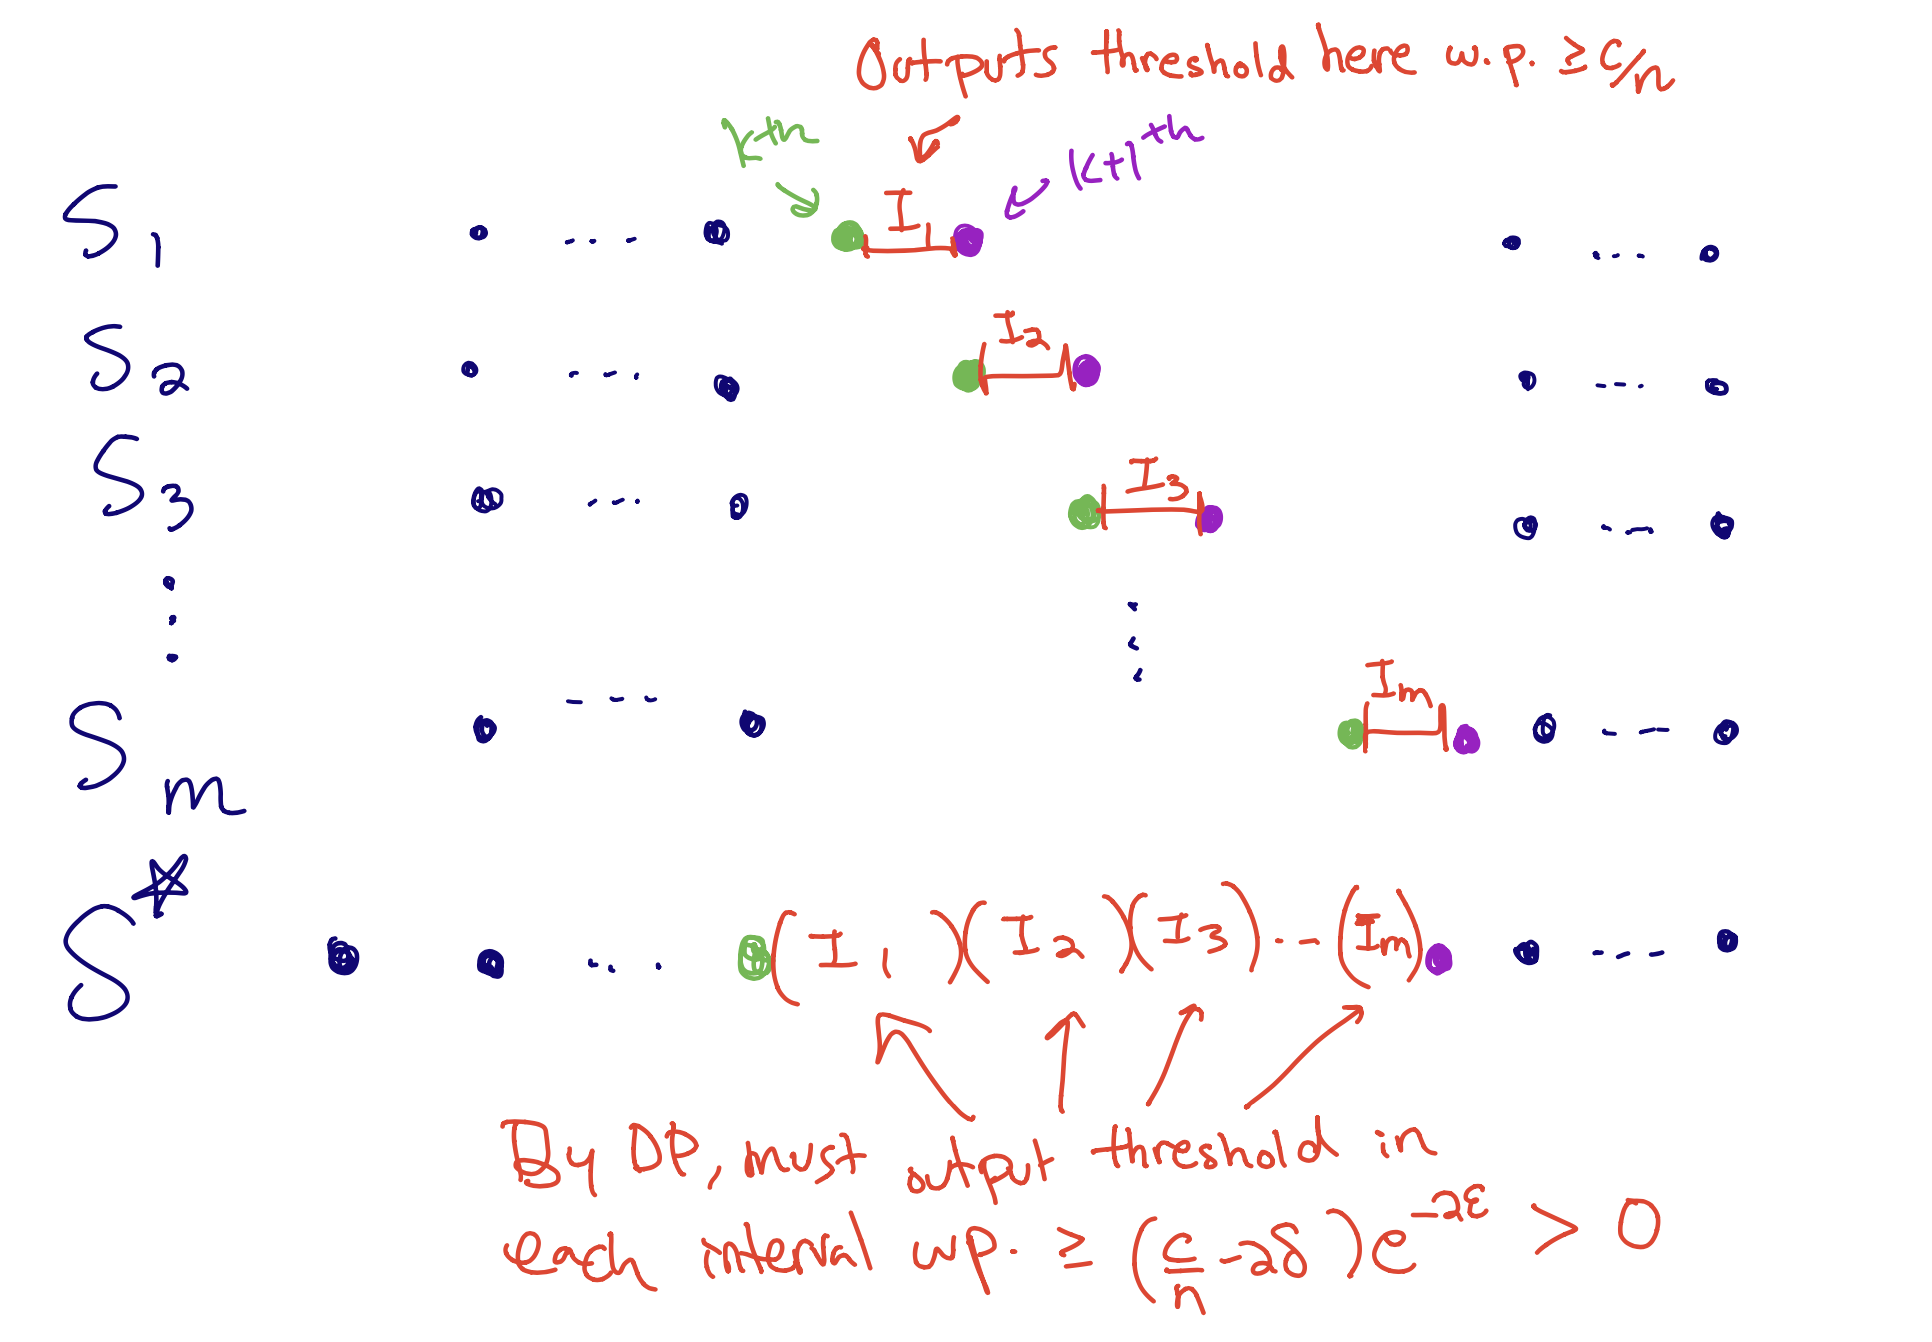 Outputs threshold here w.p. ≥ c/n
kth
(k+1)th
S1
I1
S2
I2
S3
I3
Sm
Im
S☆
( I1 )( I2 )( I3 ) -- ( Im )
By DP, must output threshold in
each interval wp. ≥ (c/n - 2δ) e^{-2ε} > 0